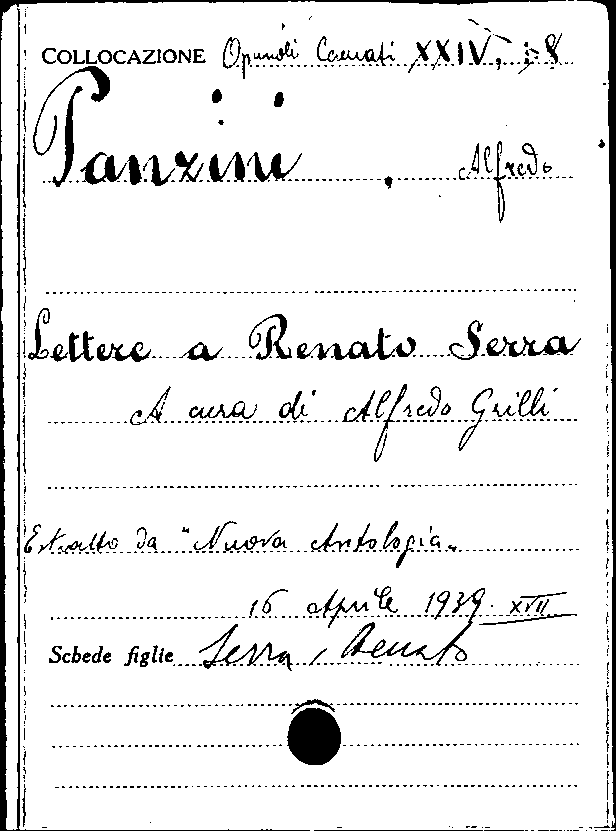 COLLOCAZIONE Opuscoli XXIV, 8
Panzini, Alfredo
Lettere a Renato Serra
A cura di Alfredo Grilli
Estratto da "Nuova Antologia"
16 Aprile 1939. XVII
Schede figlie Serra, Renato